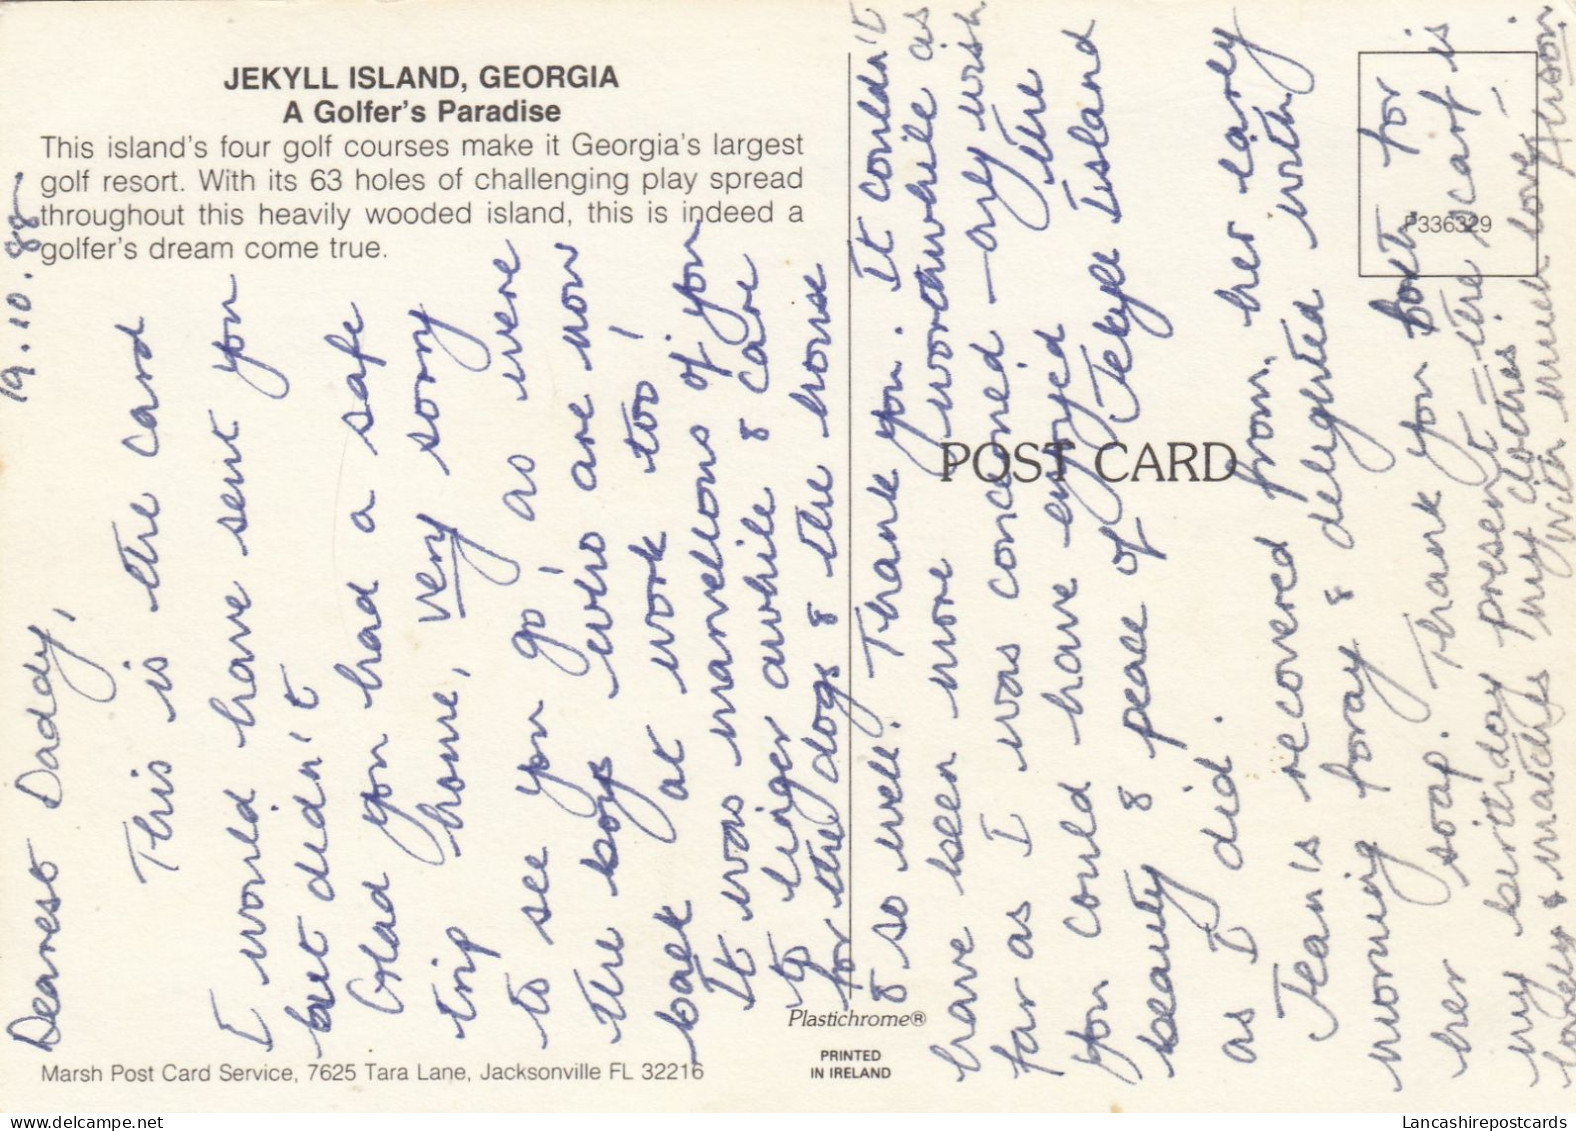 JEKYLL ISLAND, GEORGIA
A Golfer's Paradise
This island's four golf courses make it Georgia's largest
golf resort. With its 63 holes of challenging play spread
throughout this heavily wooded island, this is indeed a
golfer's dream come true.
POST CARD
P336329
Plastichrome®
PRINTED
IN IRELAND
Marsh Post Card Service, 7625 Tara Lane, Jacksonville FL 32216
19.10.88
Dearest Daddy,
This is the card
I would have sent you
but didn't
Glad you had a safe
trip home, very sorry
to see you go, as were
the boys who are now
back at work too!
It was marvellous of you
to linger awhile & care
for the dogs & the house
& so well! Thank you. It couldn't
have been more worthwhile as
far as I was concerned - only wish
you could have enjoyed the
beauty & peace of Jekyll Island
as I did.
Jean is recovered from her early
morning foray & delighted with
her soap. Thank you both for
my birthday present - the scarf is
lovely & matches my clothes!
With much love,
Lancashirepostcards